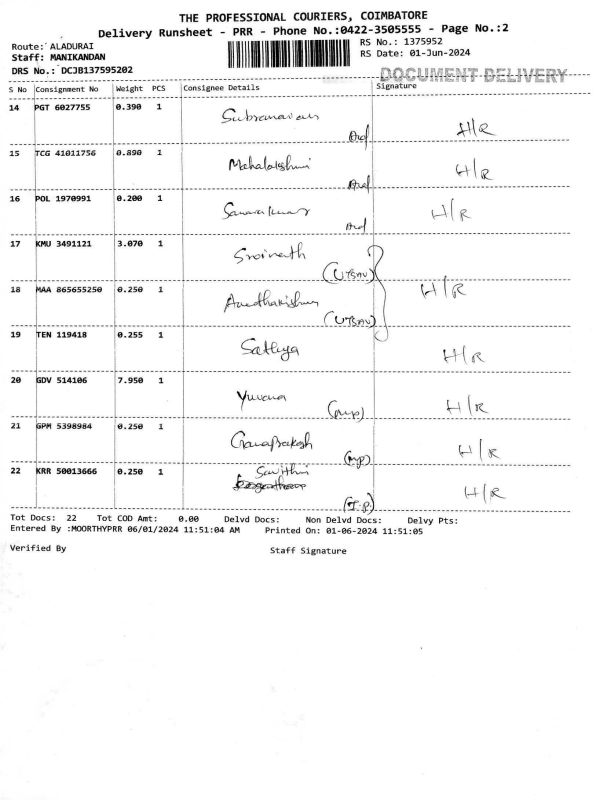 THE PROFESSIONAL COURIERS, COIMBATORE
Delivery Runsheet - PRR - Phone No.:0422-3505555 - Page No.:2
Route: ALADURAI
RS No.: 1375952
Staff: MANIKANDAN
RS Date: 01-Jun-2024
DRS No.: DCJB137595202
DOCUMENT DELIVERY
S No Consignment No Weight PCS Consignee Details Signature
14 PGT 6027755 0.390 1
H/R
15 TCG 41011756 0.890 1 Mahalakshmi
H/R
16 POL 1970991 0.200 1
H/R
17 KMU 3491121 3.070 1 Srinath
18 MAA 865655250 0.250 1
H/R
19 TEN 119418 0.255 1 Sathya
H/R
20 GDV 514106 7.950 1 Yuvana
(mp) H/R
21 GPM 5398984 0.250 1
(mp) H/R
22 KRR 50013666 0.250 1 Savithri
(T.P.) H/R
Tot Docs: 22 Tot COD Amt: 0.00 Delvd Docs: Non Delvd Docs: Delvy Pts:
Entered By :MOORTHYPRR 06/01/2024 11:51:04 AM Printed On: 01-06-2024 11:51:05
Verified By Staff Signature